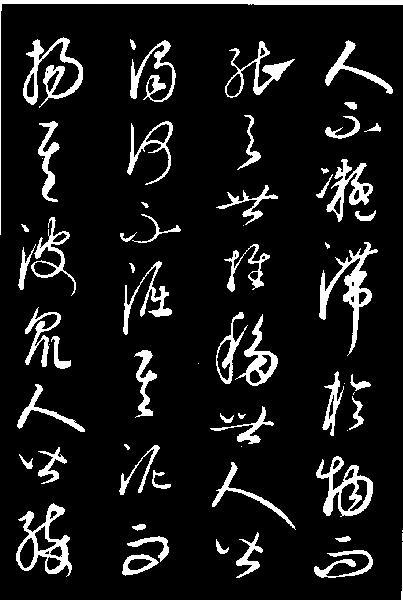 人不凝滯於物而
能与世推移世人皆
濁何不淈其泥而
揚其波衆人皆醉